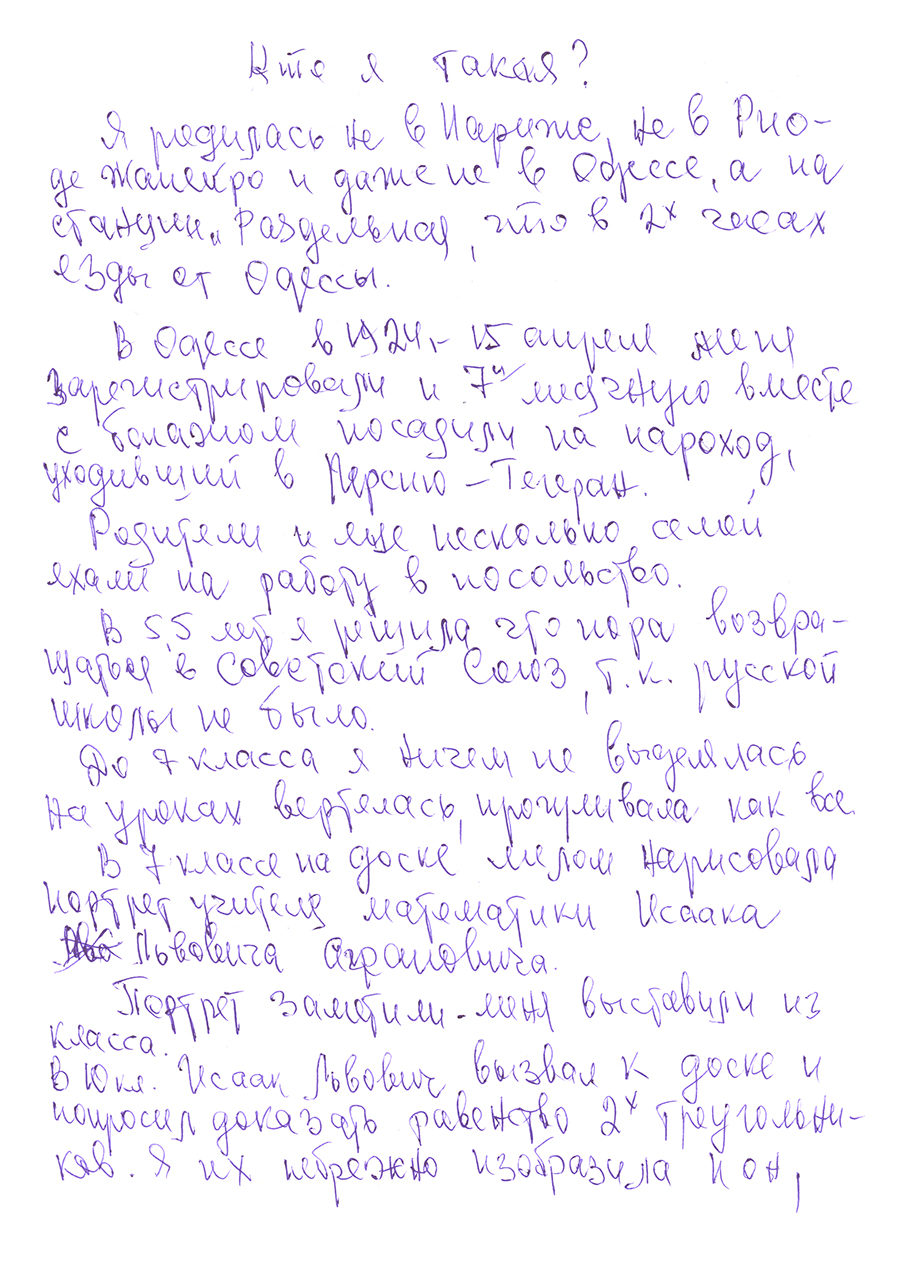 Кто я такая?
Я родилась не в Париже, не в Рио-
де Жанейро и даже не в Одессе, а на
станции „Раздельная, что в 2х часах
езды от Одессы.
В Одессе в 1924г. 15 апреля меня
зарегистрировали и 7и месячную вместе
с багажом посадили на пароход,
уходивший в Персию – Тегеран.
Родители и еще несколько семей
ехали на работу в посольство.
В 5,5 лет я решила что пора возвра-
щаться в Советский Союз, т.к. русской
школы не было.
До 7 класса я ничем не выделялась
на уроках вертелась, прогуливала как все.
В 7 классе на доске мелом нарисовала
портрет учителя математики Исаака
Львовича Аграновича.
Портрет заметили – меня выставили из
класса.
В 10 кл. Исаак Львович вызвал к доске и
попросил доказать равенство 2х треугольни-
ков. Я их небрежно изобразила и он,